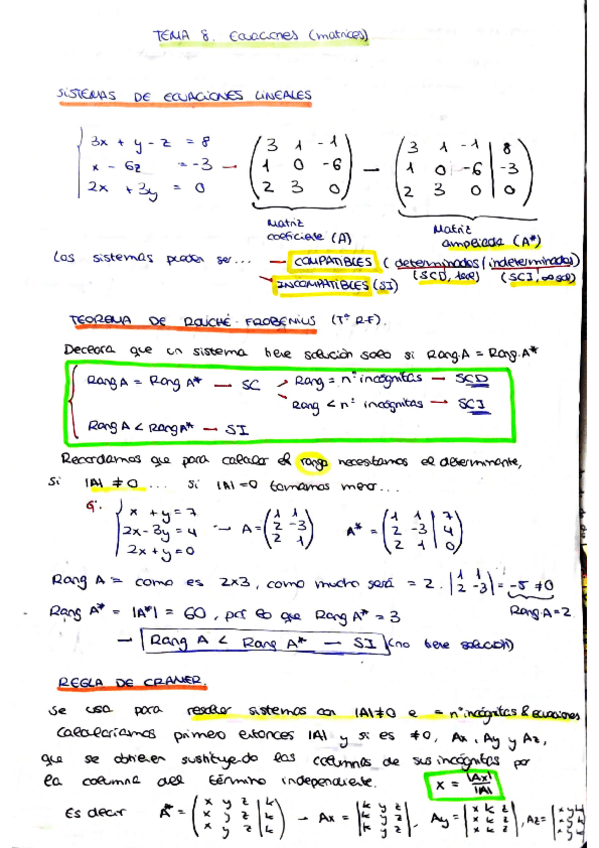 TEMA 8. ECUACIONES (matrices)
SISTEMAS DE ECUACIONES LINEALES
3x + y - z = 8
x - 6z = -3
2x + 3y = 0
3 1 -1
1 0 -6
2 3 0
3 1 -1 | 8
1 0 -6 | -3
2 3 0 | 0
Matriz coeficiente (A)
Matriz ampliada (A*)
Los sistemas pueden ser... → COMPATIBLES (determinados/indeterminados)
(SCD, 1sol) (SCI, ∞ sol)
INCOMPATIBLES (SI)
TEOREMA DE ROUCHÉ-FROBENIUS (Tª R-F).
Declara que un sistema tiene solución solo si Rang.A = Rang.A*
Rang A = Rang A* → SC → Rang = nº incógnitas → SCD
→ Rang < nº incógnitas → SCI
Rang A < Rang A* → SI
Recordamos que para calcular el rango necesitamos el determinante,
si |A| ≠ 0 ... si |A| = 0 tomamos menor...
x + y = 7
2x - 3y = 4
2x + y = 0
→ A = (1 1
2 -3
2 1)
A* = (1 1 | 7
2 -3 | 4
2 1 | 0)
Rang A = como es 2x3, como mucho será = 2. |1 1
2 -3| = -5 ≠ 0
Rang A = 2
Rang A* = |A*| = 60, por lo que Rang A* = 3
→ Rang A < Rang A* → SI (no tiene solución)
REGLA DE CRAMER.
Se usa para resolver sistemas con |A| ≠ 0 e = nº incógnitas & ecuaciones
Calcularíamos primero entonces |A| y si es ≠ 0, Ax, Ay y Az,
que se obtienen sustituyendo las columnas de sus incógnitas por
la columna del término independiente. x = |Ax| / |A|
Es decir A* = (x y z | k
x y z | k
x y z | k) → Ax = |k y z
k y z
k y z|, Ay = |x k z
x k z
x k z|, Az = |x y k
x y k
x y k|